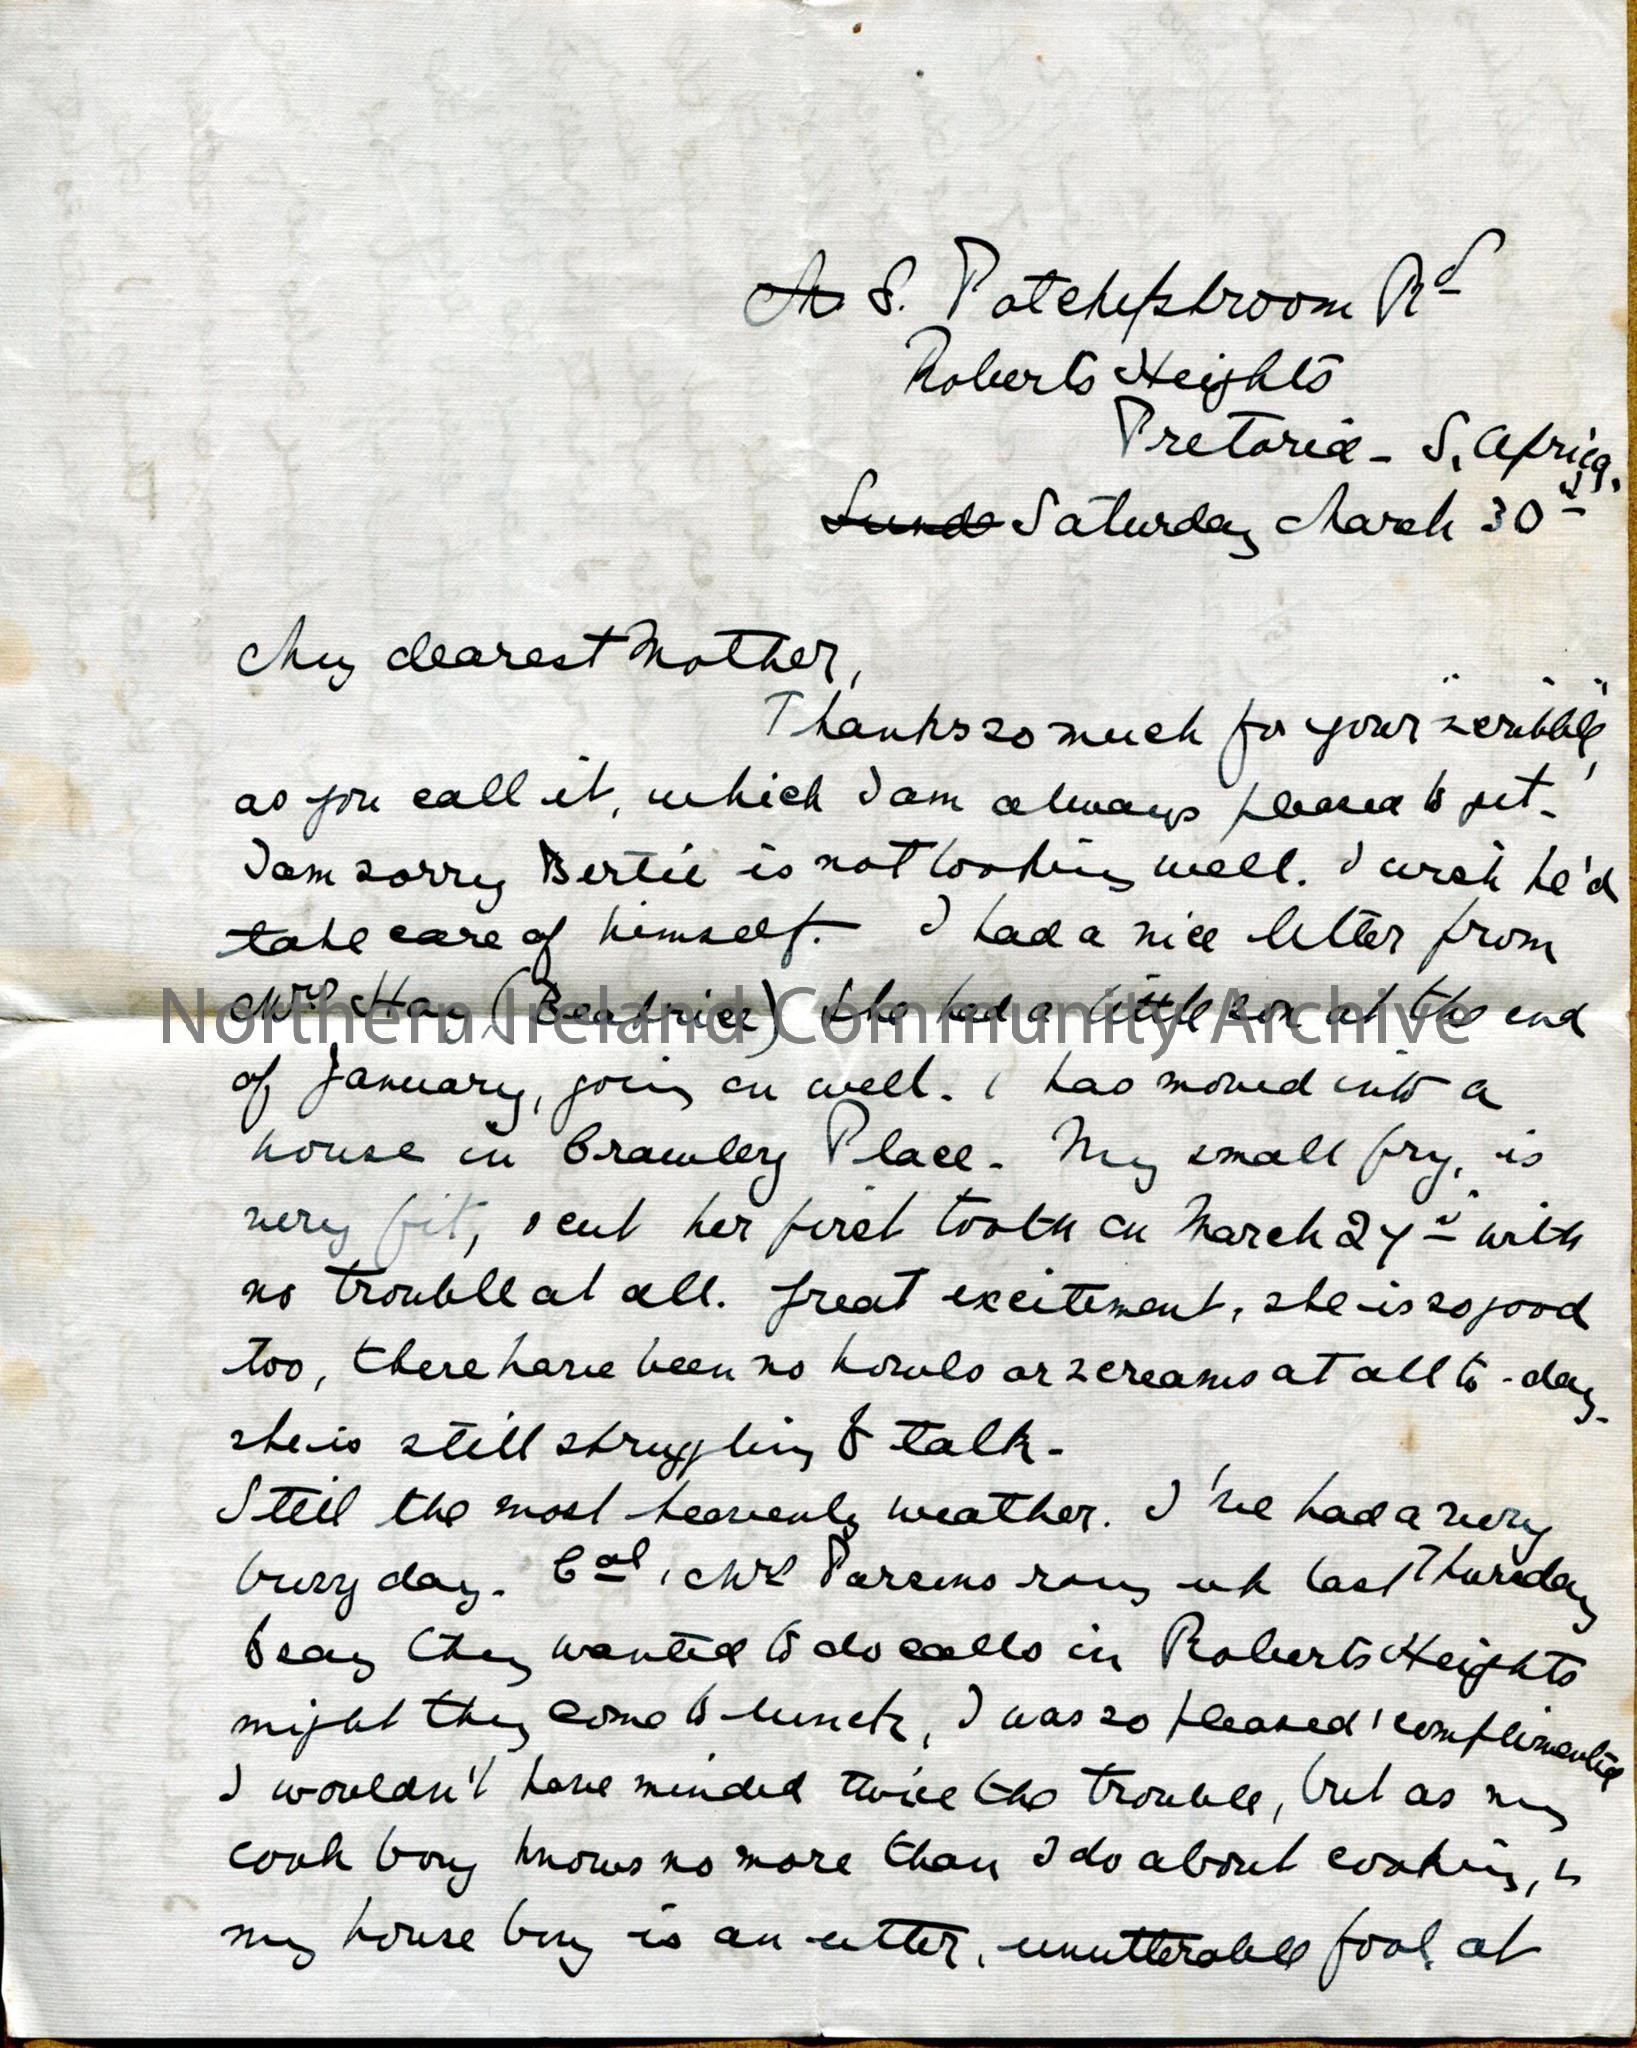 S. Potchefstroom Rd
Roberts Heights
Pretoria - S. Africa.
Saturday March 30th
My dearest Mother,
Thanks so much for your "scribble",
as you call it, which I am always pleased to get.
I am sorry Bertie is not looking well. I wish he'd
take care of himself. I had a nice letter from
Mrs Hay (Beatrice) she had a little son at the end
of January, going on well. & has moved into a
house in Bramley Place. My small fry, is
very fit, & cut her first tooth on March 24th with
no trouble at all. Great excitement, she is so good
too, there have been no howls or screams at all to-day.
she is still struggling to talk.
Still the most heavenly weather. I've had a very
busy day. Col & Mrs Parsons rang up last Thursday
to say they wanted to do calls in Roberts Heights
might they come to lunch, I was so pleased & complimented
I wouldn't have minded twice the trouble, but as my
cook boy knows no more than I do about cooking, &
my house boy is an utter, unutterable fool, at
Northern Ireland Community Archive